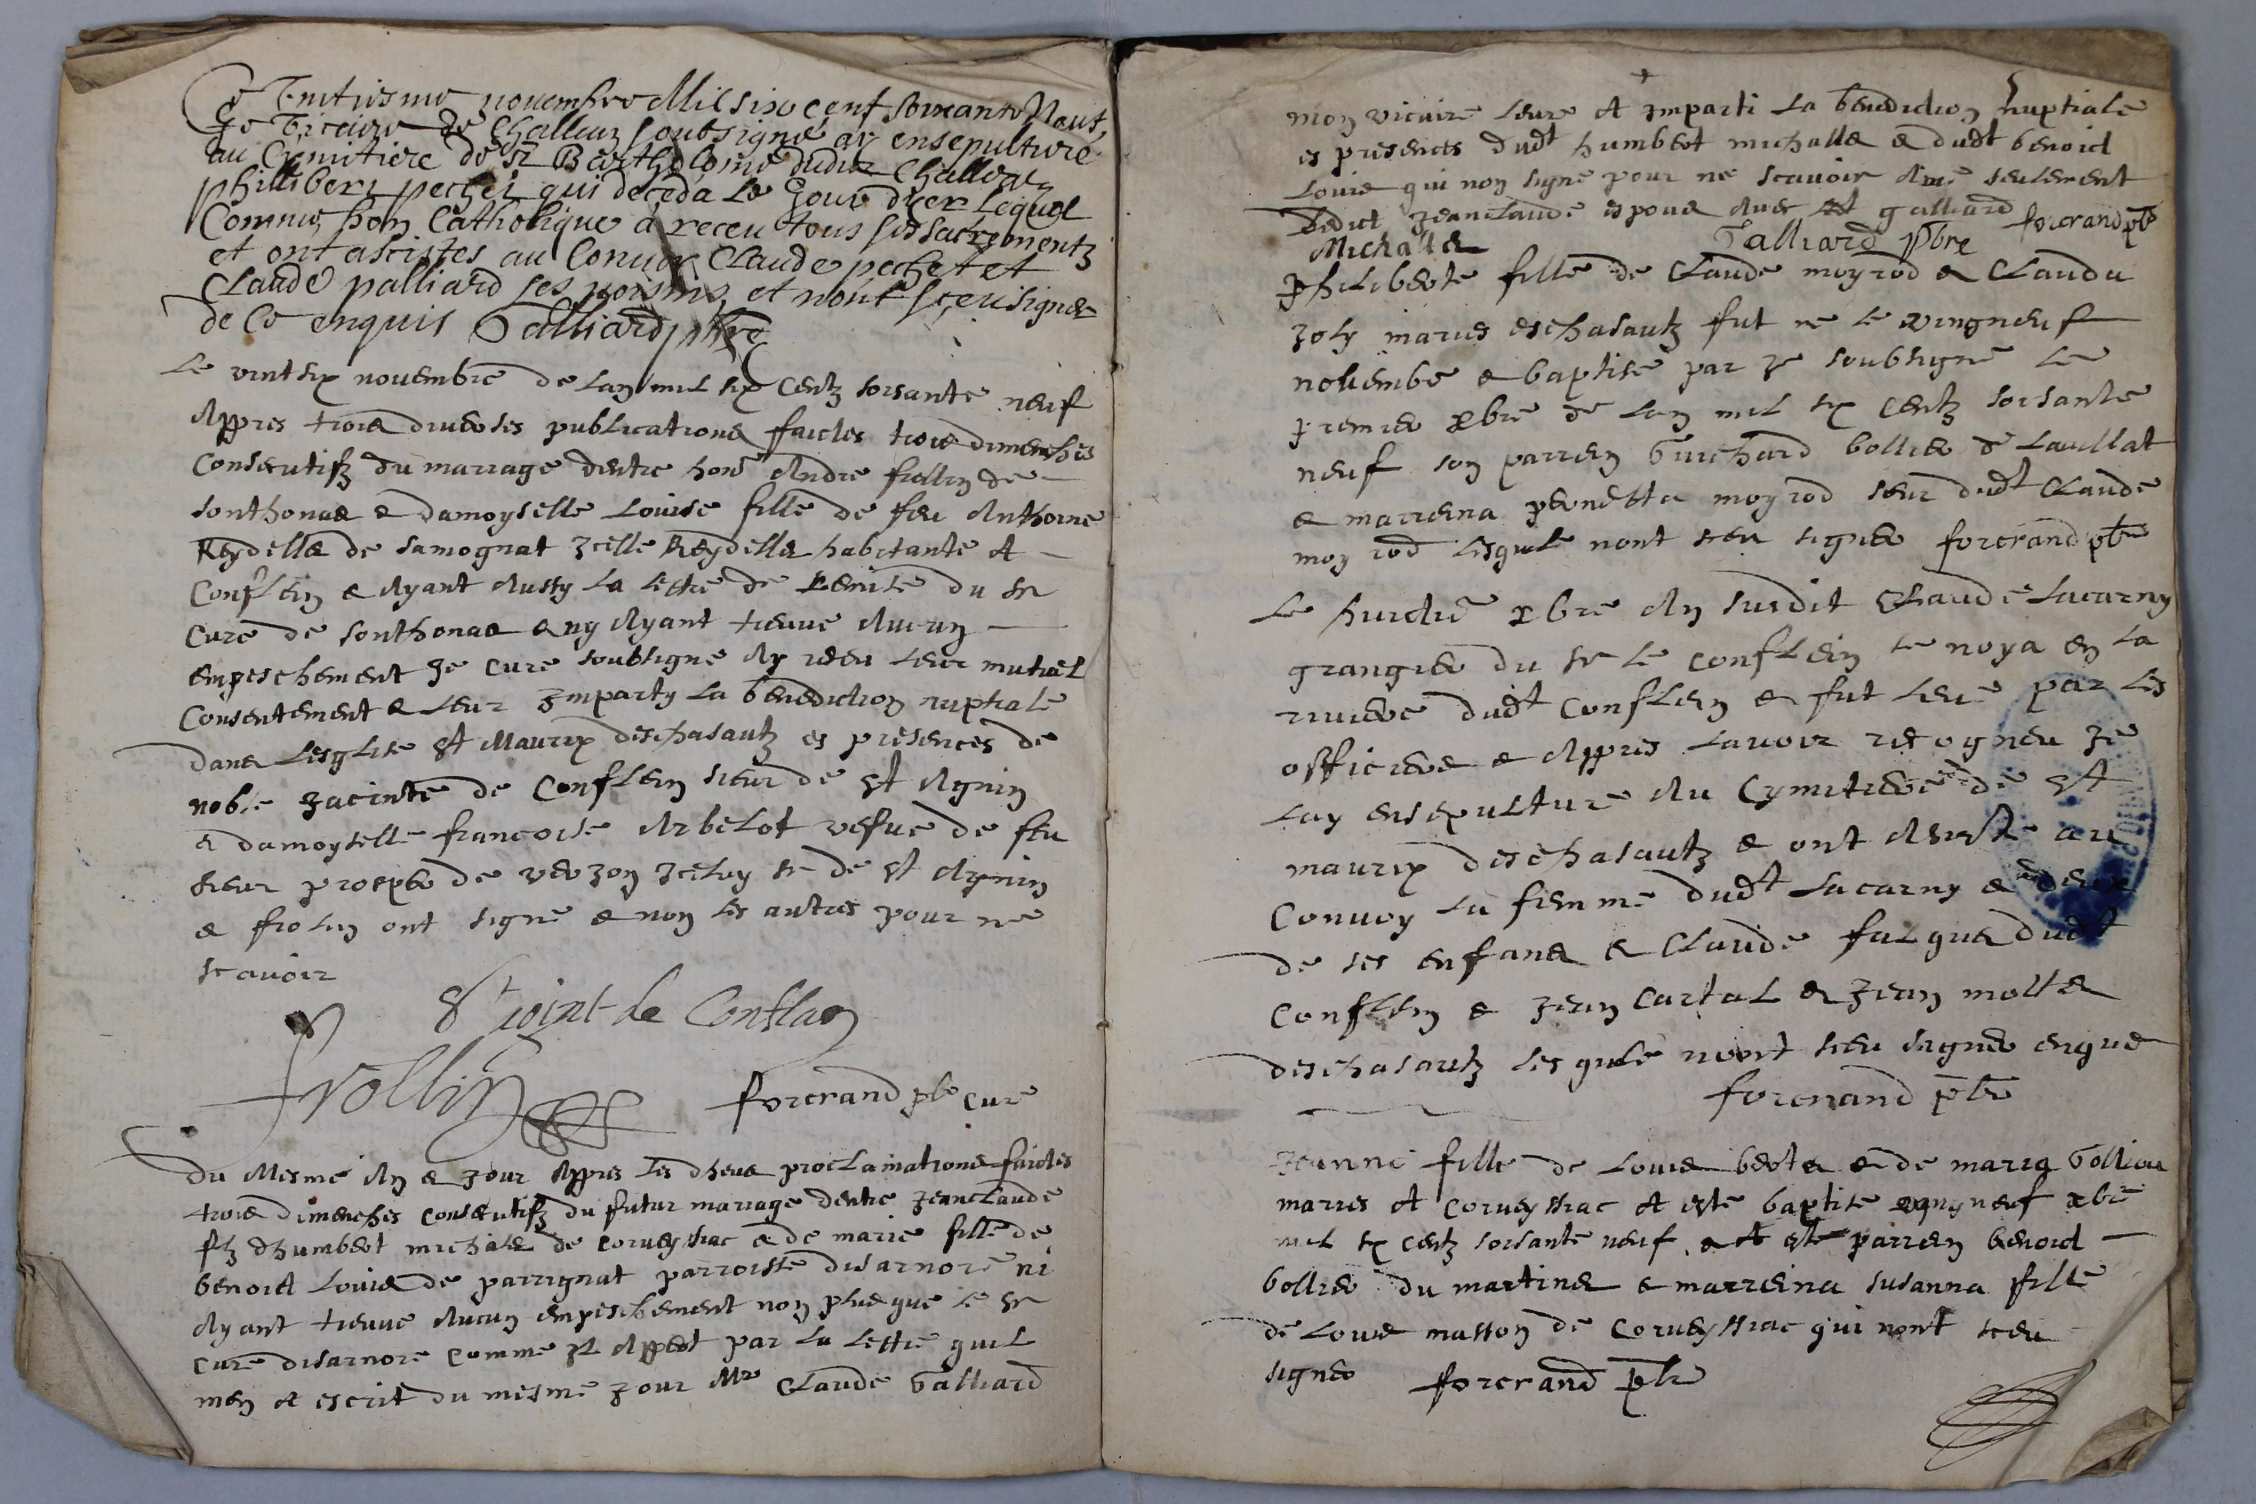 novembre Mil six cent soixante Neuf
Je Viccaire de Challeur soubsigné ay ensepulturé
au Cymitiere de St Bartholomé dudit
Phillibert pechet qui deceda le Jour d'ier lequel
Comme bon Catholique a receu tous ses sacrementz
et ont ascistes au Convoy Claude pechet et
Claude palliard ses voisins et n'ont sceu signer
de Ce enquis Galliard ptre
Le vintsix novembre de Lan mil six Centz soisante neuf
Appres trois diverses publications faictes trois dimenches
Consecutifz du mariage dentre hon^e Andre frollin de
sonthonax & damoyselle Louise fille de feu Anthoine
Reydellet de samognat Icelle Reydellet habitante A
Conflein & Ayant Aussy La lettre de Remise du sr
Cure de sonthonax & ny Ayant treuve Aucun
empeschement Je Cure soubsigne Ay receu leur mutuel
Consentement & Leur Imparty La benediction nuptiale
dans Lesglise St Maurix deschasautz es presences de
noble Jacinte de Conflein sieur de St Agnin
& damoyselle francoise Arbelot vefve de feu
sieur prosper de verzon Iceluy sr de St Agnin
& frolin ont signe & non les autres pour ne
scavoir
St joint de Conflan
frollin forcrand pbr cure
Du Mesme An & Jour Appres les dheues proclamations faictes
trois dimenches Consecutifz du futur mariage dentre Jeanclaude
fz dhumbert michalet de Corveyssiac & de marie fille de
benoict Louis de parrignat parroisse disarnore ni
Ayant treuve Aucun empeschement non plus que le sr
Cure disarnore Comme Il Appert par La Lettre quil
men A escrit du mesme Jour Mre Claude Galliard
mon vicaire Leure A Imparti La benediction Nuptiale
es presences dudt humbert michalla & dudt benoict
Louis qui non signe pour ne scavoir Ains seulement
Ledict Jeanclaude espoux Avec galliard forcrand pbr
Michalla Galliard ptre
Philiberte fille de Claude moyrod & Clauda
Joly maries eschasautz fut ne le vingneuf
novembe & baptise par Je soubsigne Le
premier xbre de Lan mil six Centz soisante
neuf son parrein Guichard bollier de Lavillat
& marreina pernetta moyrod seur dudt Claude
moyrod Lesquels nont sceu signer forcrand pbr
Le huictie xbre An susdit Claude Lacarny
grangier du sr le Conflein se noya en La
riviere dudt Conflein & fut Leve par Les
officiers & Appres Lavoir recogneu Je
Lay ensepulture Au Cymitiere de St
maurix deschasautz & ont Assiste au
Convoy La femme dudt Lacarny & deux
de ses enfans & Claude falque dudt
Conflein & Jean Cartal & Jean molla
deschasautz Lesquels nont sceu signer enquis
forcrand pbr
Jeanne fille de Louis berta & de maria Golliou
maries A Corveyssiac A este baptise xbre
mil six Centz soisante neuf & A este parrein benoict
bollier du martinet & marreina susanna fille
de Louis masson de Corveyssiac qui nont sceu
signer forcrand pbr